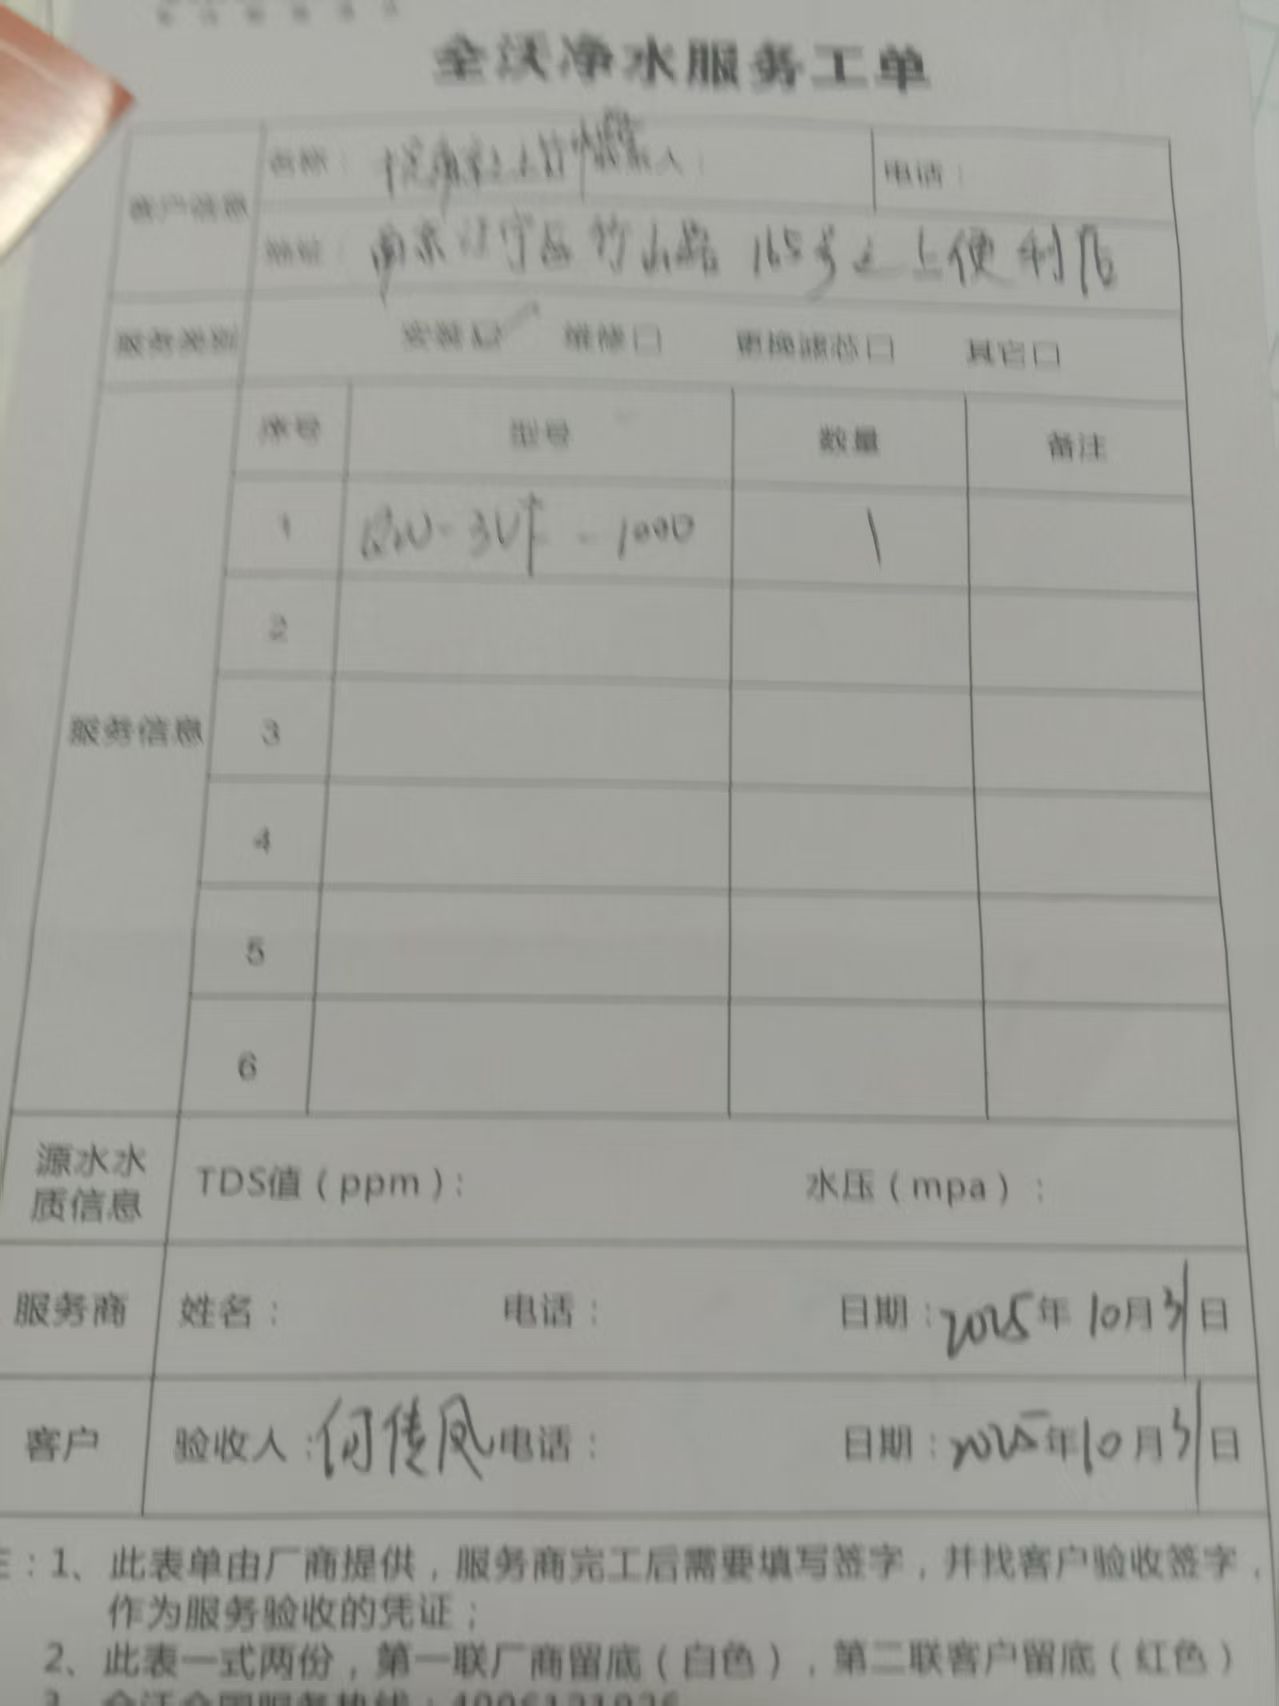 全沃净水服务工单
客户信息 名称： 人： 电话：
地址：南京江宁区竹山路165号之上便利店
服务类型 安装口 维修口 更换滤芯口 其它口
服务信息 序号 型号 数量 备注
1 QW-3UF-1000 1
2
3
4
5
6
源水水质信息 TDS值（ppm）： 水压（mpa）：
服务商 姓名： 电话： 日期：2025年10月31日
客户 验收人：何 凤 电话： 日期：2025年10月31日
：1、此表单由厂商提供，服务商完工后需要填写签字，并找客户验收签字，
作为服务验收的凭证；
2、此表一式两份，第一联厂商留底（白色），第二联客户留底（红色）
3、全沃全国服务热线：4006121926